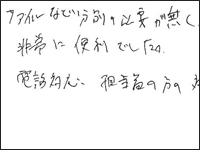 ファイルなど分別の必要が無く、
非常に便利でした。
電話対応、担当者の方の対